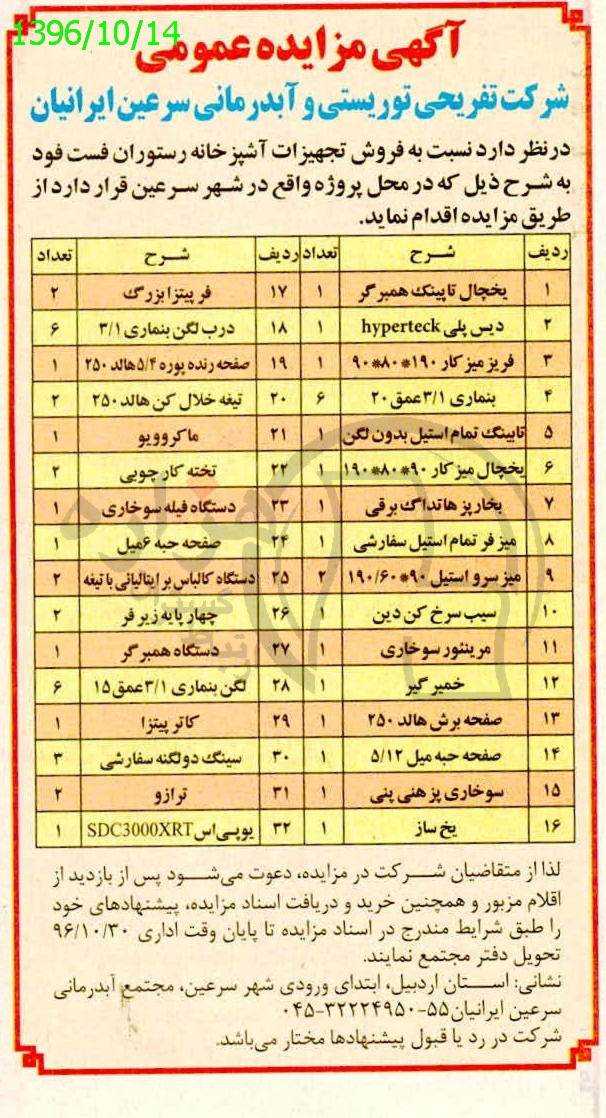 1396/10/14
آگهی مزایده عمومی
شرکت تفریحی توریستی و آبدرمانی سرعین ایرانیان
درنظر دارد نسبت به فروش تجهیزات آشپزخانه رستوران فست فود
به شرح ذیل که در محل پروژه واقع در شهر سرعین قرار دارد از
طریق مزایده اقدام نماید.
ردیف شرح تعداد ردیف شرح تعداد
۱ یخچال تاپینک همبرگر ۱ ۱۷ فر پیتزا بزرگ ۲
۲ دیس پلی hyperteck ۱ ۱۸ درب لگن بنماری ۳/۱ ۶
۳ فریز میز کار ۱۹۰*۸۰*۹۰ ۱ ۱۹ صفحه رنده پوره ۵/۴ هالد ۲۵۰ ۱
۴ بنماری ۳/۱عمق ۲۰ ۶ ۲۰ تیغه خلال کن هالد ۲۵۰ ۲
۵ تابینگ تمام استیل بدون لگن ۱ ۲۱ ماکروویو ۱
۶ یخچال میز کار ۹۰*۸۰*۱۹۰ ۱ ۲۲ تخته کار چوبی ۲
۷ بخارپز هاتداگ برقی ۱ ۲۳ دستگاه فیله سوخاری ۱
۸ میز فر تمام استیل سفارشی ۱ ۲۴ صفحه حبه ۶میل ۱
۹ میز سرو استیل ۹۰*۱۹۰/۶۰ ۲ ۲۵ دستگاه کالباس بر ایتالیائی با تیغه ۲
۱۰ سیب سرخ کن دین ۱ ۲۶ چهارپایه زیر فر ۲
۱۱ مرینئور سوخاری ۱ ۲۷ دستگاه همبرگر ۱
۱۲ خمیر گیر ۱ ۲۸ لگن بنماری ۳/۱عمق۱۵ ۶
۱۳ صفحه برش هالد ۲۵۰ ۱ ۲۹ کاتر پیتزا ۱
۱۴ صفحه حبه میل ۵/۱۲ ۱ ۳۰ سینگ دولگنه سفارشی ۳
۱۵ سوخاری پز هنی پنی ۱ ۳۱ ترازو ۲
۱۶ یخ ساز ۱ ۳۲ یوپی‌اس SDC3000XRT ۱
لذا از متقاضیان شرکت در مزایده، دعوت می‌شود پس از بازدید از
اقلام مزبور و همچنین خرید و دریافت اسناد مزایده، پیشنهادهای خود
را طبق شرایط مندرج در اسناد مزایده تا پایان وقت اداری ۹۶/۱۰/۳۰
تحویل دفتر مجتمع نمایند.
نشانی: استان اردبیل، ابتدای ورودی شهر سرعین، مجتمع آبدرمانی
سرعین ایرانیان ۵۵-۳۲۲۲۴۹۵۰-۰۴۵
شرکت در رد یا قبول پیشنهادها مختار می‌باشد.